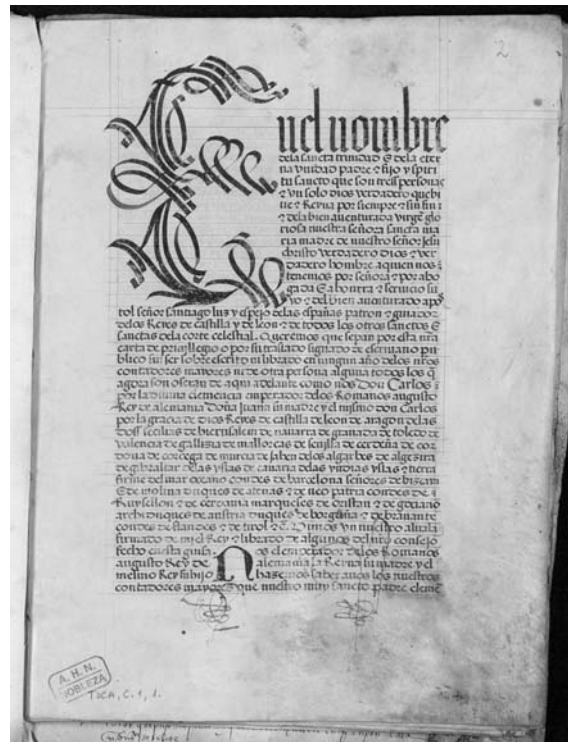 2
En el nombre
dela sancta trinidad E dela eter
na vnidad padre ⁊ fijo y spiri
tu sancto que son tres personas
⁊ vn solo dios verdadero que bi
ue ⁊ Reyna por siempre ⁊ sin fin ⁊
⁊ dela bien auenturada virgẽ glo
riosa nuestra señora sancta ma
ria madre de nuestro señor Jesu
christo verdadero dios ⁊ ver
dadero hombre a quien nos ⁊
tenemos por señora ⁊ por abo
gada E a honrra ⁊ seruicio su
yo ⁊ del bien auenturado apos
tol señor santiago luz y espejo delas españas patron ⁊ guiador
delos Reyes de castilla y de leon ⁊ de todos los otros sanctos E
sanctas dela corte celestial. Queremos que sepan por esta nr̃a
carta de priuillegio o por su traslado signado de escriuano pu
blico sin ser sobre escrito ni librado en ningun año delos nr̃os
contadores mayores ni de otra persona alguna todos los q̃
agora son o seran de aqui adelante como nos Don Carlos ⁊
por la diuina clemencia emperador delos Romanos augusto
Rey de alemania Doña Juana su madre y el mismo don Carlos
por la gracia de dios Reyes de castilla de leon de aragon delas
dos secilias de hierusalem de nauarra de granada de toledo de
valencia de gallizia de mallorcas de seuilla de cerdeña de cor
doua de corcega de murcia de jahen delos algarbes de algezira
de gibraltar delas yslas de canaria delas yndias yslas ⁊ tierra
firme del mar oceano condes de barcelona señores de bizcaya
E de molina duques de atenas ⁊ de neopatria condes de ⁊
Ruysellon ⁊ de cerdania marqueses de oristan ⁊ de gociano
archiduques de austria duques de borgoña ⁊ de brauante
condes de flandes ⁊ de tirol ⁊ c̃. Vimos vn nuestro aluala
firmado de mi el Rey ⁊ librado de algunos del nr̃o consejo
fecho en esta guisa. Nos el emperador delos Romanos
augusto Rey de alemania la Reyna su madre y el
mesmo Rey su hijo hazemos saber a vos los nuestros
contadores mayores que nuestro muy sancto padre clemẽ
A. H. N.
NOBLEZA
TOCA, C. 1, 1.